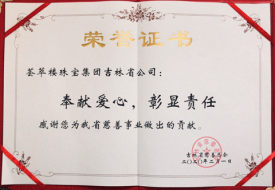 荣誉证书
荟萃楼珠宝集团吉林省公司：
奉献爱心，彰显责任
感谢您为我省慈善事业做出的贡献。
吉林省慈善总会
二〇二〇年二月一日